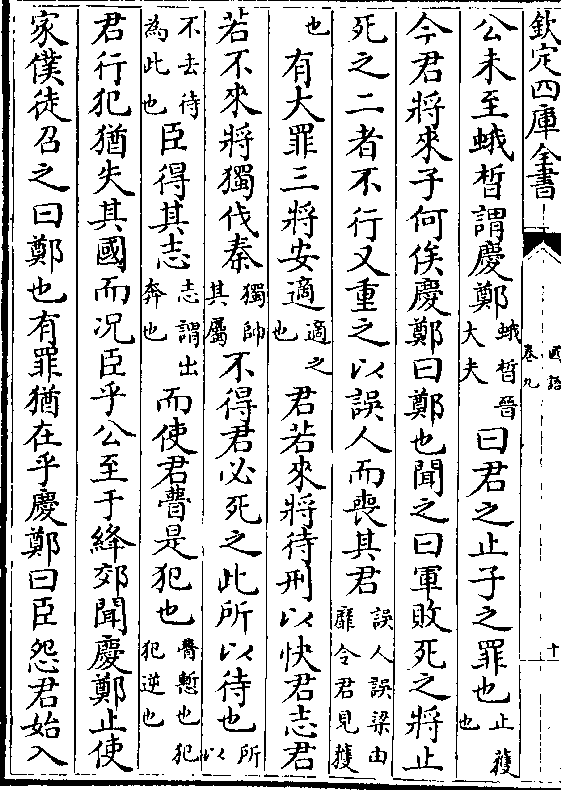 欽定四庫全書
國語
卷九
十
公未至蛾晳謂慶鄭蛾晳晉大夫曰君之止子之罪也止獲也
今君將來子何俟慶鄭曰鄭也聞之曰軍敗死之將止
死之二者不行又重之以誤人而喪其君誤人誤梁由靡令君見獲
也有大罪三將安適適之也君若來將待刑以快君志君
若不來將獨伐秦獨帥其屬不得君必死之此所以待也所以
不去待為此也臣得其志志謂出奔也而使君瞢是犯也瞢慙也犯犯逆也
君行犯猶失其國而況臣乎公至于絳郊聞慶鄭止使
家僕徒召之曰鄭也有罪猶在乎慶鄭曰臣怨君始入